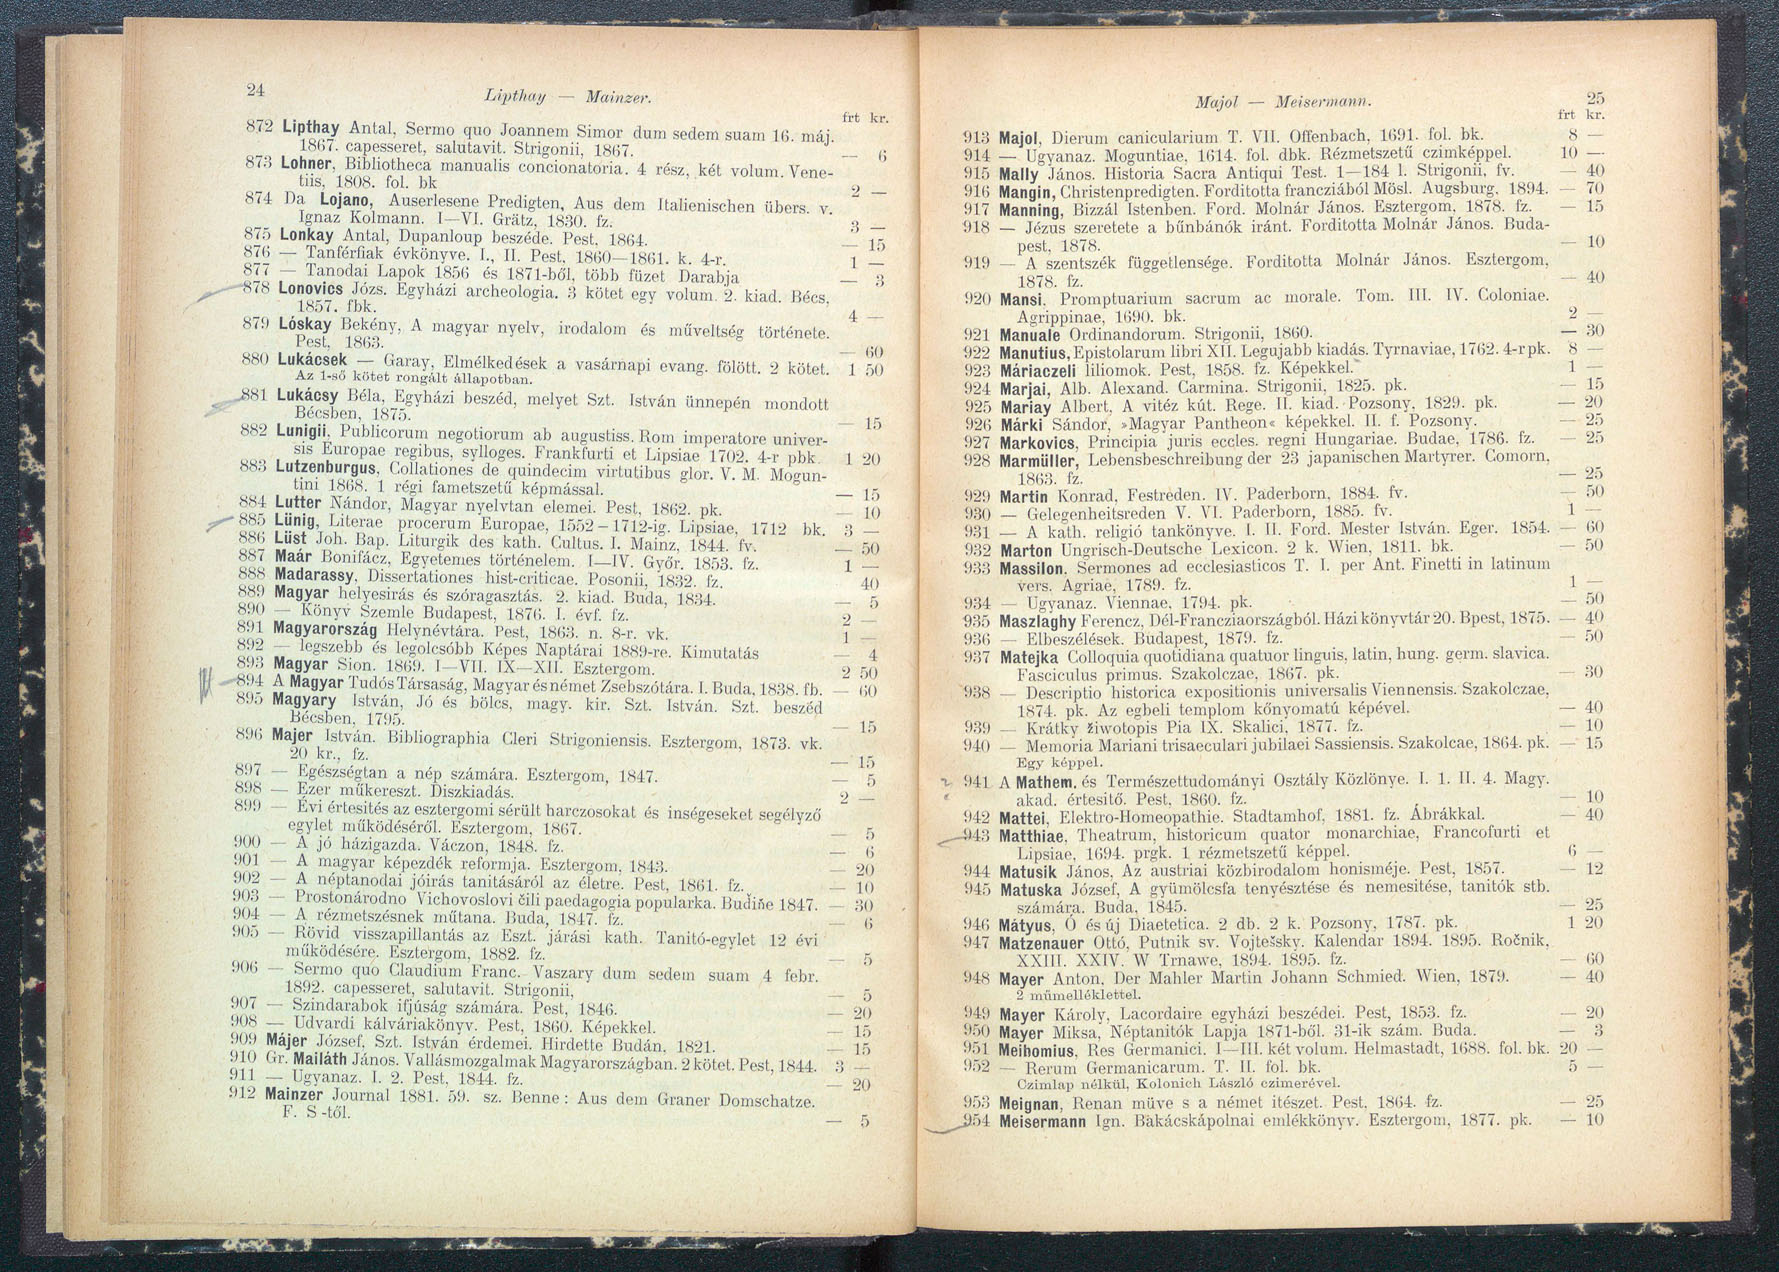 24
Lipthay — Mainzer.
frt kr.
872 Lipthay Antal, Sermo quo Joannem Simor dum sedem suam 16. máj.
1867. capesseret, salutavit. Strigonii, 1867. — 6
873 Lohner, Bibliotheca manualis concionatoria. 4 rész, két volum. Vene-
tiis, 1808. fol. bk 2 —
874 Da Lojano, Auserlesene Predigten, Aus dem Italienischen übers. v.
Ignaz Kolmann. I—VI. Grätz, 1830. fz. 3 —
875 Lonkay Antal, Dupanloup beszéde. Pest, 1864. — 15
876 — Tanférfiak évkönyve. I., II. Pest, 1860—1861. k. 4-r. 1 —
877 — Tanodai Lapok 1856 és 1871-ből, több füzet Darabja — 3
878 Lonovics Józs. Egyházi archeologia. 3 kötet egy volum. 2. kiad. Bécs,
1857. fbk. 4 —
879 Lóskay Bekény, A magyar nyelv, irodalom és műveltség története.
Pest, 1863. — 60
880 Lukácsek — Garay, Elmélkedések a vasárnapi evang. fölött. 2 kötet. 1 50
Az 1-ső kötet rongált állapotban.
881 Lukácsy Béla, Egyházi beszéd, melyet Szt. István ünnepén mondott
Bécsben, 1875. — 15
882 Lunigii, Publicorum negotiorum ab augustiss. Rom imperatore univer-
sis Europae regibus, sylloges. Frankfurti et Lipsiae 1702. 4-r pbk 1 20
883 Lutzenburgus, Collationes de quindecim virtutibus glor. V. M. Mogun-
tini 1868. 1 régi fametszetű képmással. — 15
884 Lutter Nándor, Magyar nyelvtan elemei. Pest, 1862. pk. — 10
885 Lünig, Literae procerum Europae, 1552–1712-ig. Lipsiae, 1712 bk. 3 —
886 Lüst Joh. Bap. Liturgik des kath. Cultus. I. Mainz, 1844. fv. — 50
887 Maár Bonifácz, Egyetemes történelem. I—IV. Győr. 1853. fz. 1 —
888 Madarassy, Dissertationes hist-criticae. Posonii, 1832. fz. 40
889 Magyar helyesirás és szóragasztás. 2. kiad. Buda, 1834. — 5
890 — Könyv Szemle Budapest, 1876. I. évf. fz. 2 —
891 Magyarország Helynévtára. Pest, 1863. n. 8-r. vk. 1 —
892 — legszebb és legolcsóbb Képes Naptárai 1889-re. Kimutatás — 4
893 Magyar Sion. 1869. I—VII. IX—XII. Esztergom. 2 50
894 A Magyar Tudós Társaság, Magyar és német Zsebszótára. I. Buda, 1838. fb. — 60
895 Magyary István, Jó és bölcs, magy. kir. Szt. István. Szt. beszéd
Bécsben, 1795. — 15
896 Majer István. Bibliographia Cleri Strigoniensis. Esztergom, 1873. vk.
20 kr., fz. — 15
897 — Egészségtan a nép számára. Esztergom, 1847. — 5
898 — Ezer műkereszt. Diszkiadás. 2 —
899 — Évi értesités az esztergomi sérült harczosokat és inségeseket segélyző
egylet működéséről. Esztergom, 1867. — 5
900 — A jó házigazda. Váczon, 1848. fz. — 6
901 — A magyar képezdék reformja. Esztergom, 1843. — 20
902 — A néptanodai jóirás tanitásáról az életre. Pest, 1861. fz. — 10
903 — Prostonárodno Vichovoslovi čili paedagogia popularka. Budiňe 1847. — 30
904 — A rézmetszésnek műtana. Buda, 1847. fz. — 6
905 — Rövid visszapillantás az Eszt. járási kath. Tanitó-egylet 12 évi
működésére. Esztergom, 1882. fz. — 5
906 — Sermo quo Claudium Franc. Vaszary dum sedem suam 4 febr.
1892. capesseret, salutavit. Strigonii, — 5
907 — Szindarabok ifjúság számára. Pest, 1846. — 20
908 — Udvardi kálváriakönyv. Pest, 1860. Képekkel. — 15
909 Májer József, Szt. István érdemei. Hirdette Budán, 1821. — 15
910 Gr. Mailáth János. Vallásmozgalmak Magyarországban. 2 kötet. Pest, 1844. 3 —
911 — Ugyanaz. I. 2. Pest, 1844. fz. — 20
912 Mainzer Journal 1881. 59. sz. Benne: Aus dem Graner Domschatze.
F. S -től. — 5
Majol — Meisermann.
25
frt kr.
913 Majol, Dierum canicularium T. VII. Offenbach, 1691. fol. bk. 8 —
914 — Ugyanaz. Moguntiae, 1614. fol. dbk. Rézmetszetű czimképpel. 10 —
915 Mally János. Historia Sacra Antiqui Test. 1—184 l. Strigonii, fv. — 40
916 Mangin, Christenpredigten. Forditotta francziából Mösl. Augsburg, 1894. — 70
917 Manning, Bizzál Istenben. Ford. Molnár János. Esztergom, 1878. fz. — 15
918 — Jézus szeretete a bűnbánók iránt. Forditotta Molnár János. Buda-
pest, 1878. — 10
919 — A szentszék függetlensége. Forditotta Molnár János. Esztergom,
1878. fz. — 40
920 Mansi, Promptuarium sacrum ac morale. Tom. III. IV. Coloniae.
Agrippinae, 1690. bk. 2 —
921 Manuale Ordinandorum. Strigonii, 1860. — 30
922 Manutius, Epistolarum libri XII. Legujabb kiadás. Tyrnaviae, 1762. 4-r pk. 8 —
923 Máriaczeli liliomok. Pest, 1858. fz. Képekkel. 1 —
924 Marjai, Alb. Alexand. Carmina. Strigonii, 1825. pk. — 15
925 Mariay Albert, A vitéz kút. Rege. II. kiad. Pozsony, 1829. pk. — 20
926 Márki Sándor, »Magyar Pantheon« képekkel. II. f. Pozsony. — 25
927 Markovics, Principia juris eccles. regni Hungariae. Budae, 1786. fz. — 25
928 Marmüller, Lebensbeschreibung der 23 japanischen Martyrer. Comorn,
1863. fz. — 25
929 Martin Konrad, Festreden. IV. Paderborn, 1884. fv. — 50
930 — Gelegenheitsreden V. VI. Paderborn, 1885. fv. 1 —
931 — A kath. religió tankönyve. I. II. Ford. Mester István. Eger. 1854. — 60
932 Marton Ungrisch-Deutsche Lexicon. 2 k. Wien, 1811. bk. — 50
933 Massilon, Sermones ad ecclesiasticos T. I. per Ant. Finetti in latinum
vers. Agriae, 1789. fz. 1 —
934 — Ugyanaz. Viennae, 1794. pk. — 50
935 Maszlaghy Ferencz, Dél-Francziaországból. Házi könyvtár 20. Bpest, 1875. — 40
936 — Elbeszélések. Budapest, 1879. fz. — 50
937 Matejka Colloquia quotidiana quatuor linguis, latin, hung. germ. slavica.
Fasciculus primus. Szakolczae, 1867. pk. — 30
938 — Descriptio historica expositionis universalis Viennensis. Szakolczae,
1874. pk. Az egbeli templom kőnyomatú képével. — 40
939 — Krátky žiwotopis Pia IX. Skalici, 1877. fz. — 10
940 — Memoria Mariani trisaeculari jubilaei Sassiensis. Szakolcae, 1864. pk. — 15
Egy képpel.
941 A Mathem. és Természettudományi Osztály Közlönye. I. 1. II. 4. Magy.
akad. értesitő. Pest, 1860. fz. — 10
942 Mattei, Elektro-Homeopathie. Stadtamhof, 1881. fz. Ábrákkal. — 40
943 Matthiae, Theatrum, historicum quator monarchiae, Francofurti et
Lipsiae, 1694. prgk. 1 rézmetszetű képpel. 6 —
944 Matusik János, Az austriai közbirodalom honisméje. Pest, 1857. — 12
945 Matuska József, A gyümölcsfa tenyésztése és nemesitése, tanitók stb.
számára. Buda, 1845. — 25
946 Mátyus, Ó és új Diaetetica. 2 db. 2 k. Pozsony, 1787. pk. 1 20
947 Matzenauer Ottó, Putnik sv. Vojtešsky. Kalendar 1894. 1895. Ročnik,
XXIII. XXIV. W Trnawe, 1894. 1895. fz. — 60
948 Mayer Anton, Der Mahler Martin Johann Schmied. Wien, 1879. — 40
2 műmelléklettel.
949 Mayer Károly, Lacordaire egyházi beszédei. Pest, 1853. fz. — 20
950 Mayer Miksa, Néptanitók Lapja 1871-ből. 31-ik szám. Buda. — 3
951 Meibomius, Res Germanici. I—III. két volum. Helmastadt, 1688. fol. bk. 20 —
952 — Rerum Germanicarum. T. II. fol. bk. 5 —
Czimlap nélkül, Kolonich László czimerével.
953 Meignan, Renan müve s a német itészet. Pest, 1864. fz. — 25
954 Meisermann Ign. Bakácskápolnai emlékkönyv. Esztergom, 1877. pk. — 10